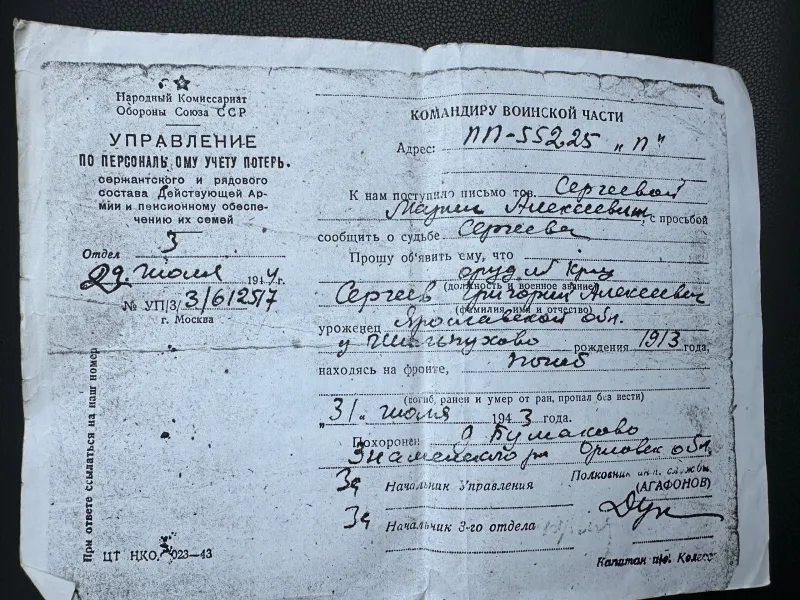 Народный Комиссариат
Обороны Союза ССР
УПРАВЛЕНИЕ
ПО ПЕРСОНАЛЬ ОМУ УЧЕТУ ПОТЕРЬ.
сержантского и рядового
состава Действующей Ар-
мии и пенсионному обеспе-
чению их семей
Отдел 3
29 июля 1944 г.
№ УП/3/ 3/612517
г. Москва
При ответе ссылаться на наш номер
ЦТ НКО. 023—43
КОМАНДИРУ ВОИНСКОЙ ЧАСТИ
Адрес: ПП-55225 „П"
К нам поступило письмо тов. Сергеевой
Марии Алексеевны, с просьбой
сообщить о судьбе Сергеева
Прошу об'явить ему, что
(должность и военное звание)
Сергеев Григорий Алексеевич
(фамилия, имя и отчество)
уроженец Ярославской обл.
рождения 1913 года,
находясь на фронте, погиб
(погиб, ранен и умер от ран, пропал без вести)
„31„ июля 1943 года.
Похоронен д Бумаково
Знаменского р Орловск обл.
За Начальник Управления
Полковник инт. службы
(АГАФОНОВ)
За Начальник 3-го отдела
Капитан